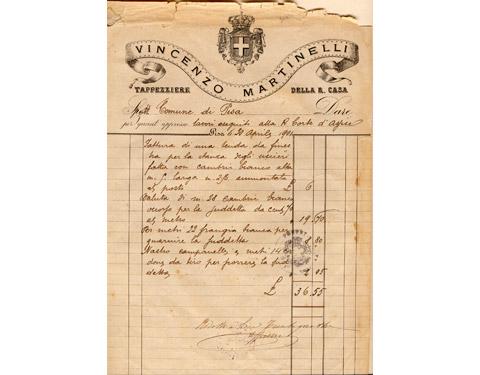 VINCENZO MARTINELLI
TAPPEZZIERE DELLA R. CASA
Spett Comune di Pisa Dare
per quanto appresso lavori eseguiti alla R. Corte d'
Pisa 30 Aprile 901
Fattura di una tenda da fines
tra per la stanza degli uscieri
fatta con cambrì bianco alta
m. larga m. ammontata
al posto £ 6
Valuta di m. 28 cambrì bianco
per la suddetta da cent 70
al metro 19 . 70
Per metri 22 frangia bianca per
guarnire la suddetta 80
Nastro campanelle e metri 14 cor
done da tiro per porre la sud
detta 2 05
£ 36 . 55